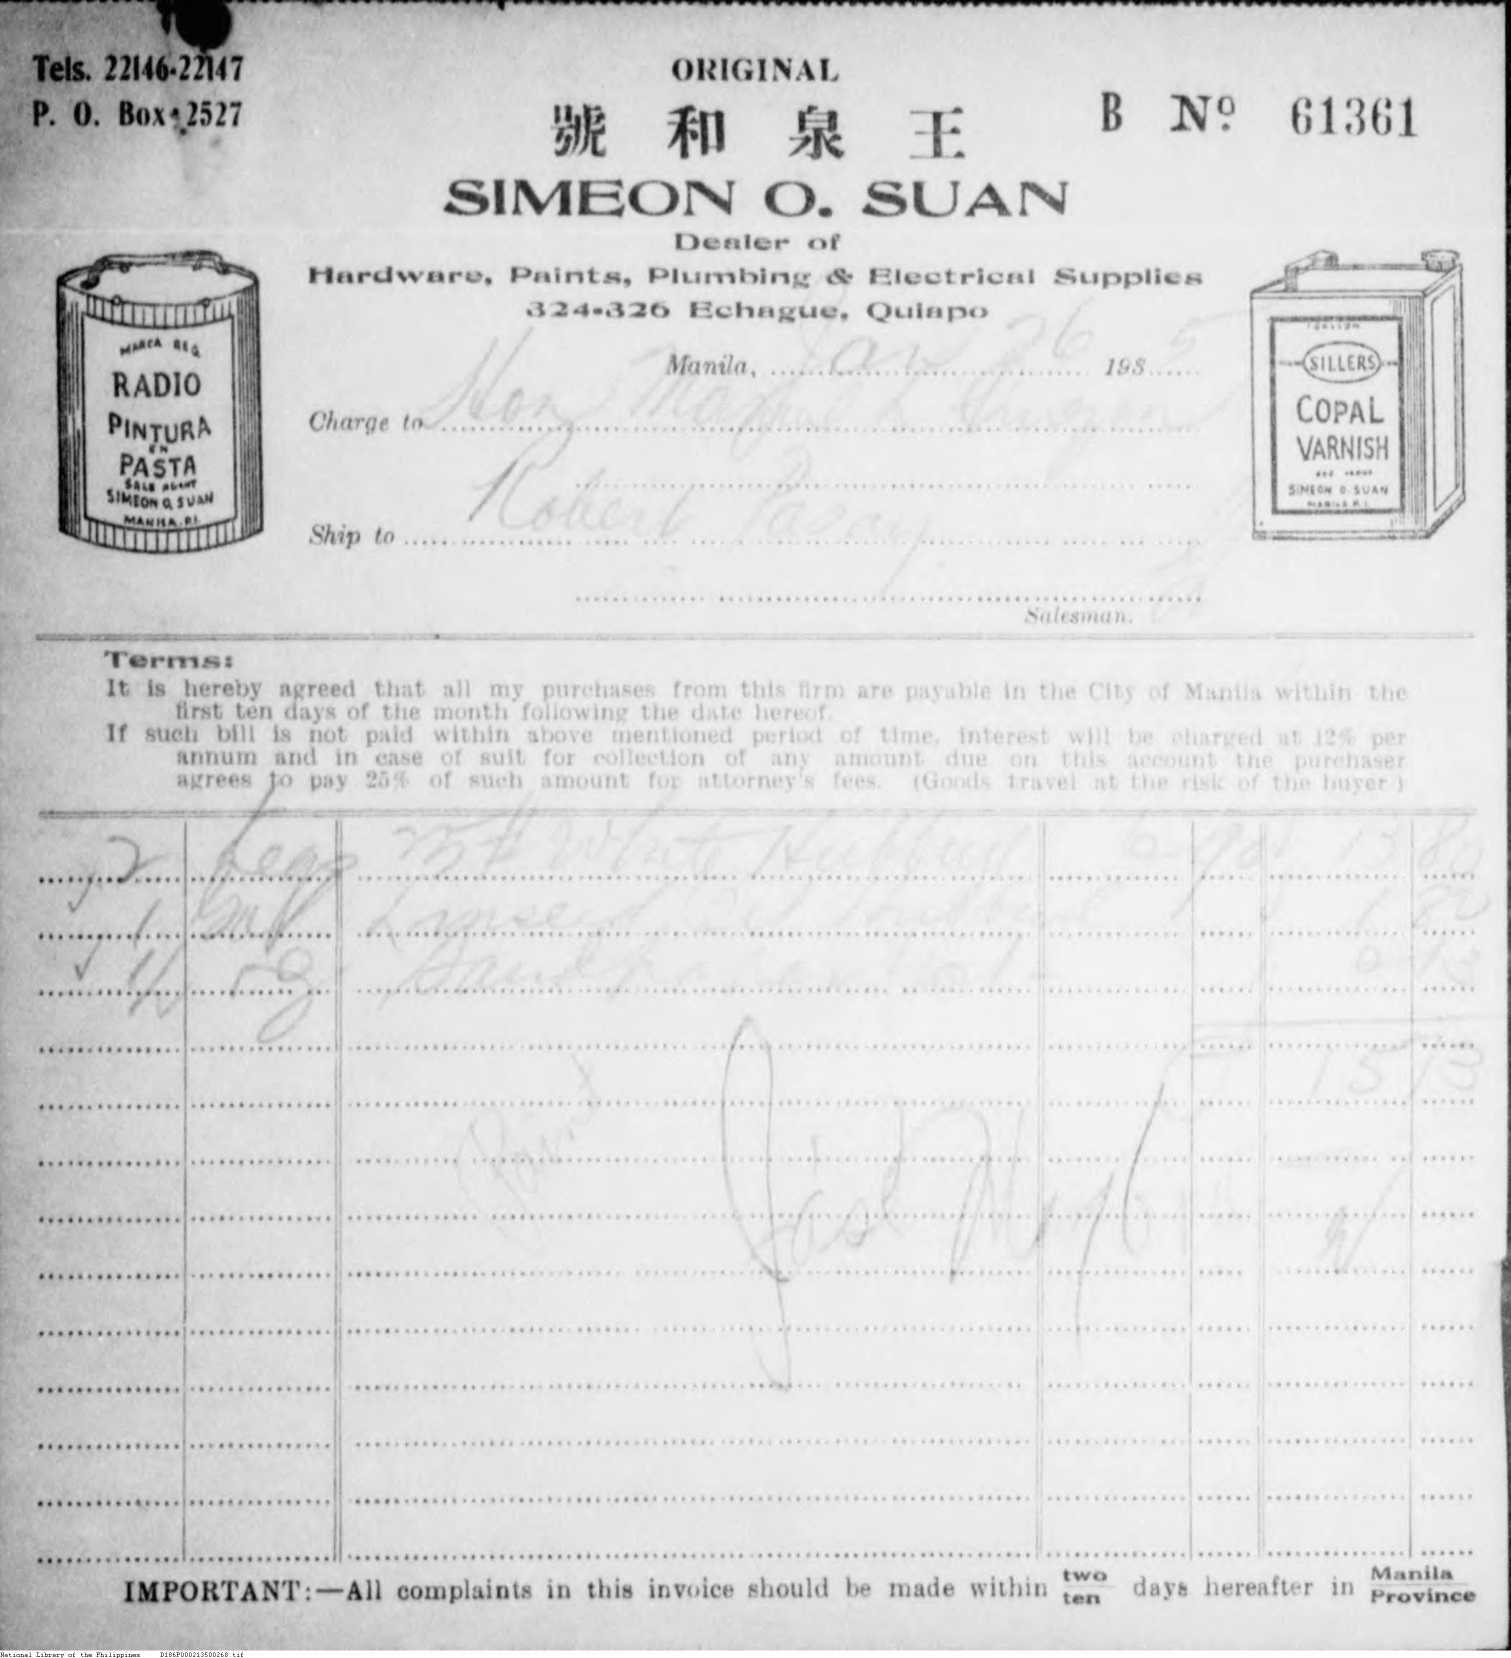 Tels. 22146-22147
P. O. Box 2527
ORIGINAL
B Nº 61361
號和泉王
SIMEON O. SUAN
Dealer of
Hardware, Paints, Plumbing & Electrical Supplies
324-326 Echague, Quiapo
Manila, Jan 26 193 5
Charge to Hon
Robert
Ship to
Salesman.
MARCA REG.
RADIO
PINTURA
EN
PASTA
SALE AGENT
SIMEON O. SUAN
MANILA, P.I.
1 GALLON
SILLERS
COPAL
VARNISH
SIMEON O. SUAN
MANILA P.I.
Terms:
It is hereby agreed that all my purchases from this firm are payable in the City of Manila within the
first ten days of the month following the date hereof.
If such bill is not paid within above mentioned period of time, interest will be charged at 12% per
annum and in case of suit for collection of any amount due on this account the purchaser
agrees to pay 25% of such amount for attorney's fees. (Goods travel at the risk of the buyer.)
2 kegs White 6 90 13 80
1 Linseed Oil
15 73
Paint
IMPORTANT:—All complaints in this invoice should be made within two ten days hereafter in Manila Province
National Library of the Philippines D186P000213500268.tif